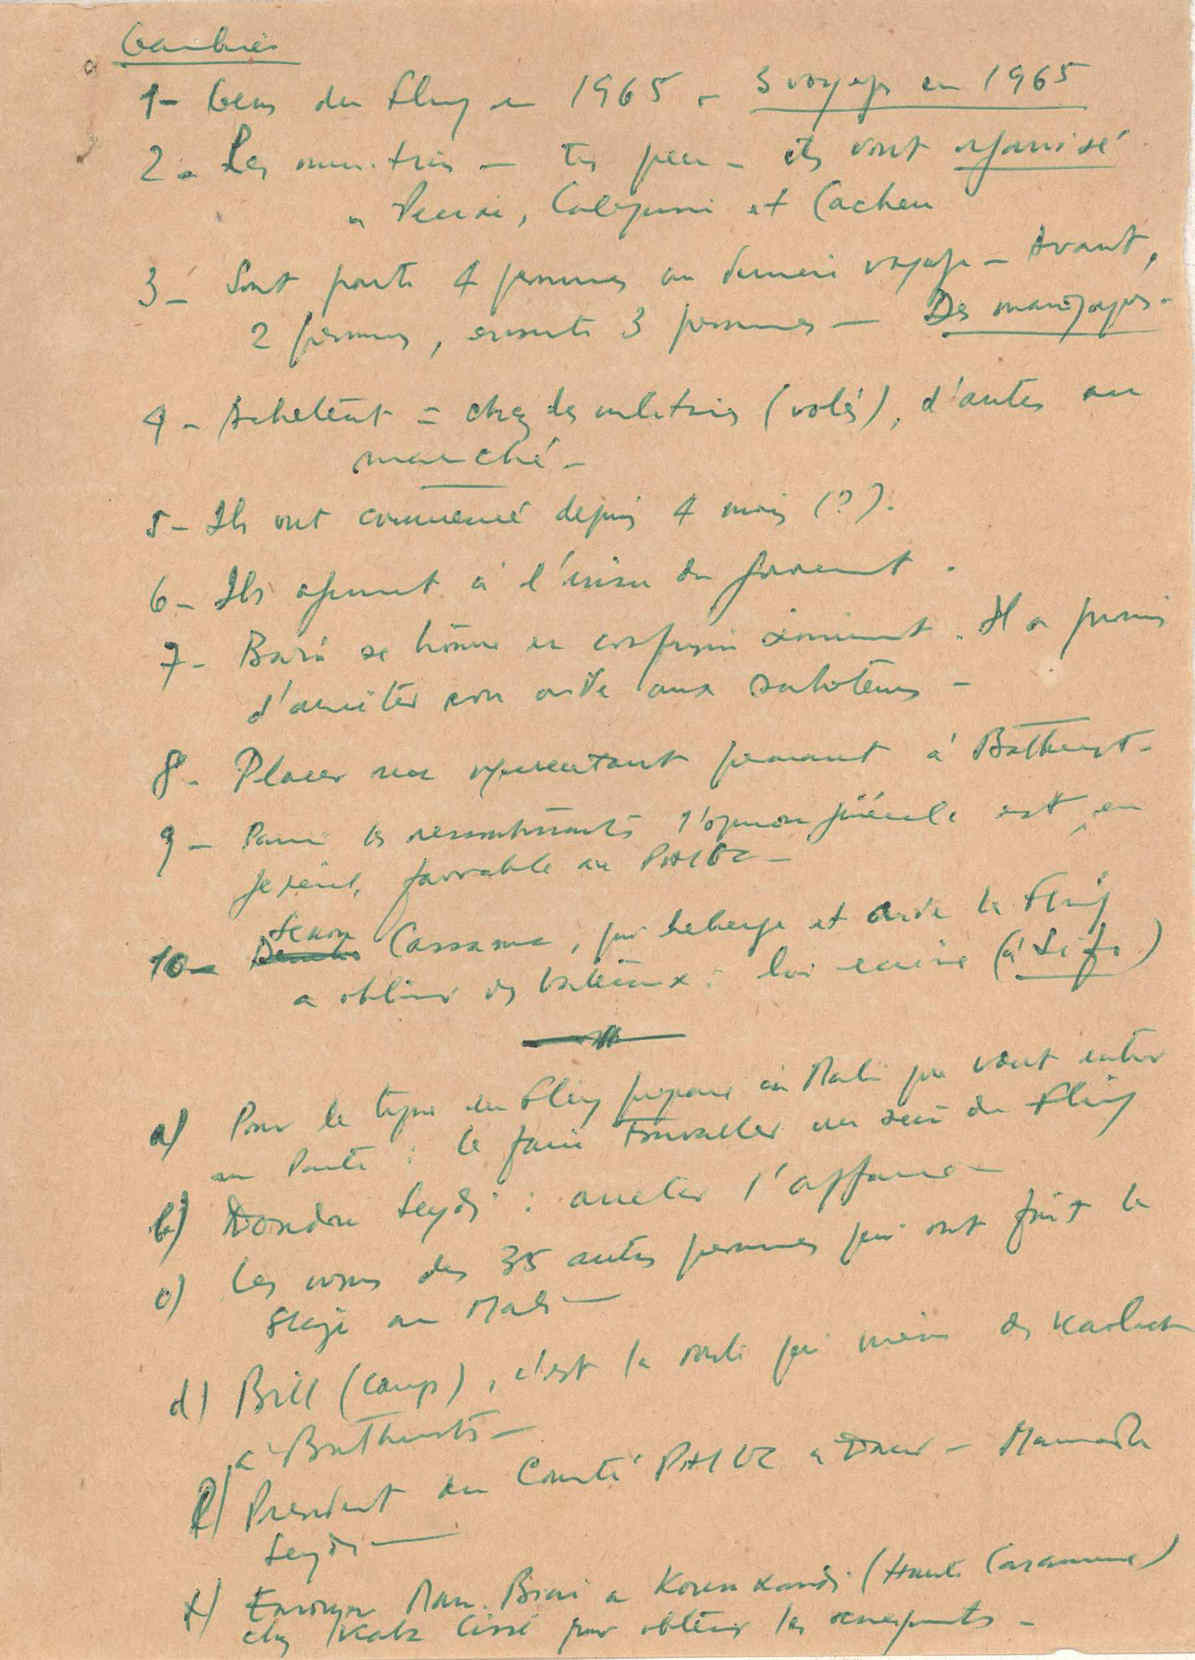 Gambie
1- Gens du Fling en 1965 - 3 voyages en 1965
2- Les munitions - très peu - ils vont organisé
a Pecixe, Calequisse et Cacheu
3- Sont partis 4 personnes au dernier voyage - Avant,
2 personnes, ensuite 3 personnes - Des manjaques.
4- Achetent = chez des militaires (volés), d'autres au
marché -
5- Ils ont commencé depuis 4 mois (?).
6- Ils agissent à l'insu du gouvernement.
7- se trouve en compagnie . Il a promis
d'arrêter son aide aux saboteurs -
8- Placer un représentant permanent à Bathurst -
9- Parmi les ressortissants l'opinion générale est, en
général, favorable au PAIGC -
10- Cassama, qui heberge et aide le Fling
a obtenir des bateaux : lui ecrire (à )
a) Pour le type du Fling préparé au Mali qui veut entrer
au Parti : le faire travailler au sein du Fling
b) Seydi : arreter l'affaire -
c) Les noms des 35 autres personnes qui ont fait le
stage au Mali -
d) Brill (camp), c'est la route qui mène de Kaolack
à Bathurst -
e) President du Comité PAIGC a - Mamadu
Seydi -
f) Envoyer Mam. a (Haute Casamance)
chez Cissé pour obtenir les renseignements -